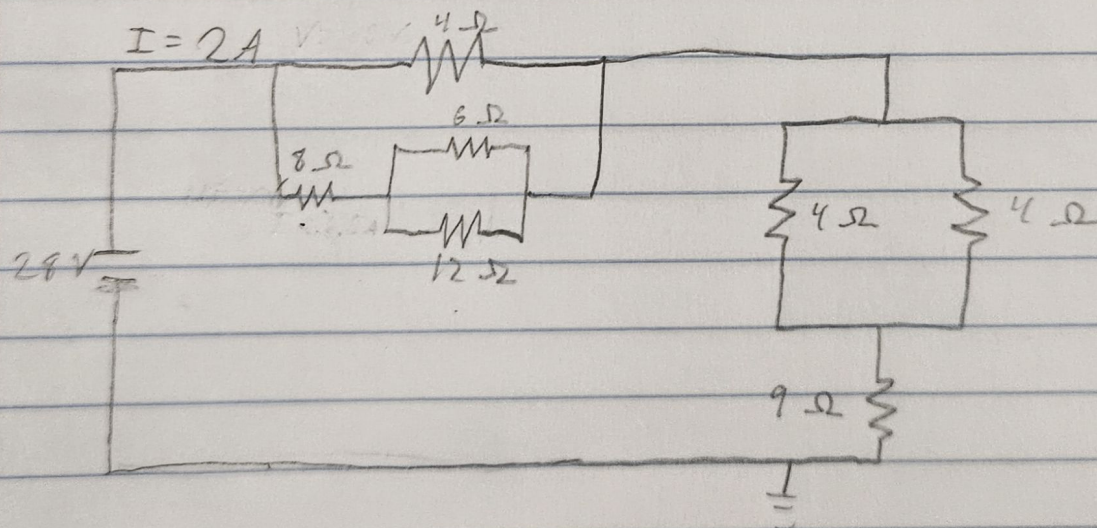 I = 2A
4 Ω
6 Ω
8 Ω
12 Ω
28 V
4 Ω
4 Ω
9 Ω